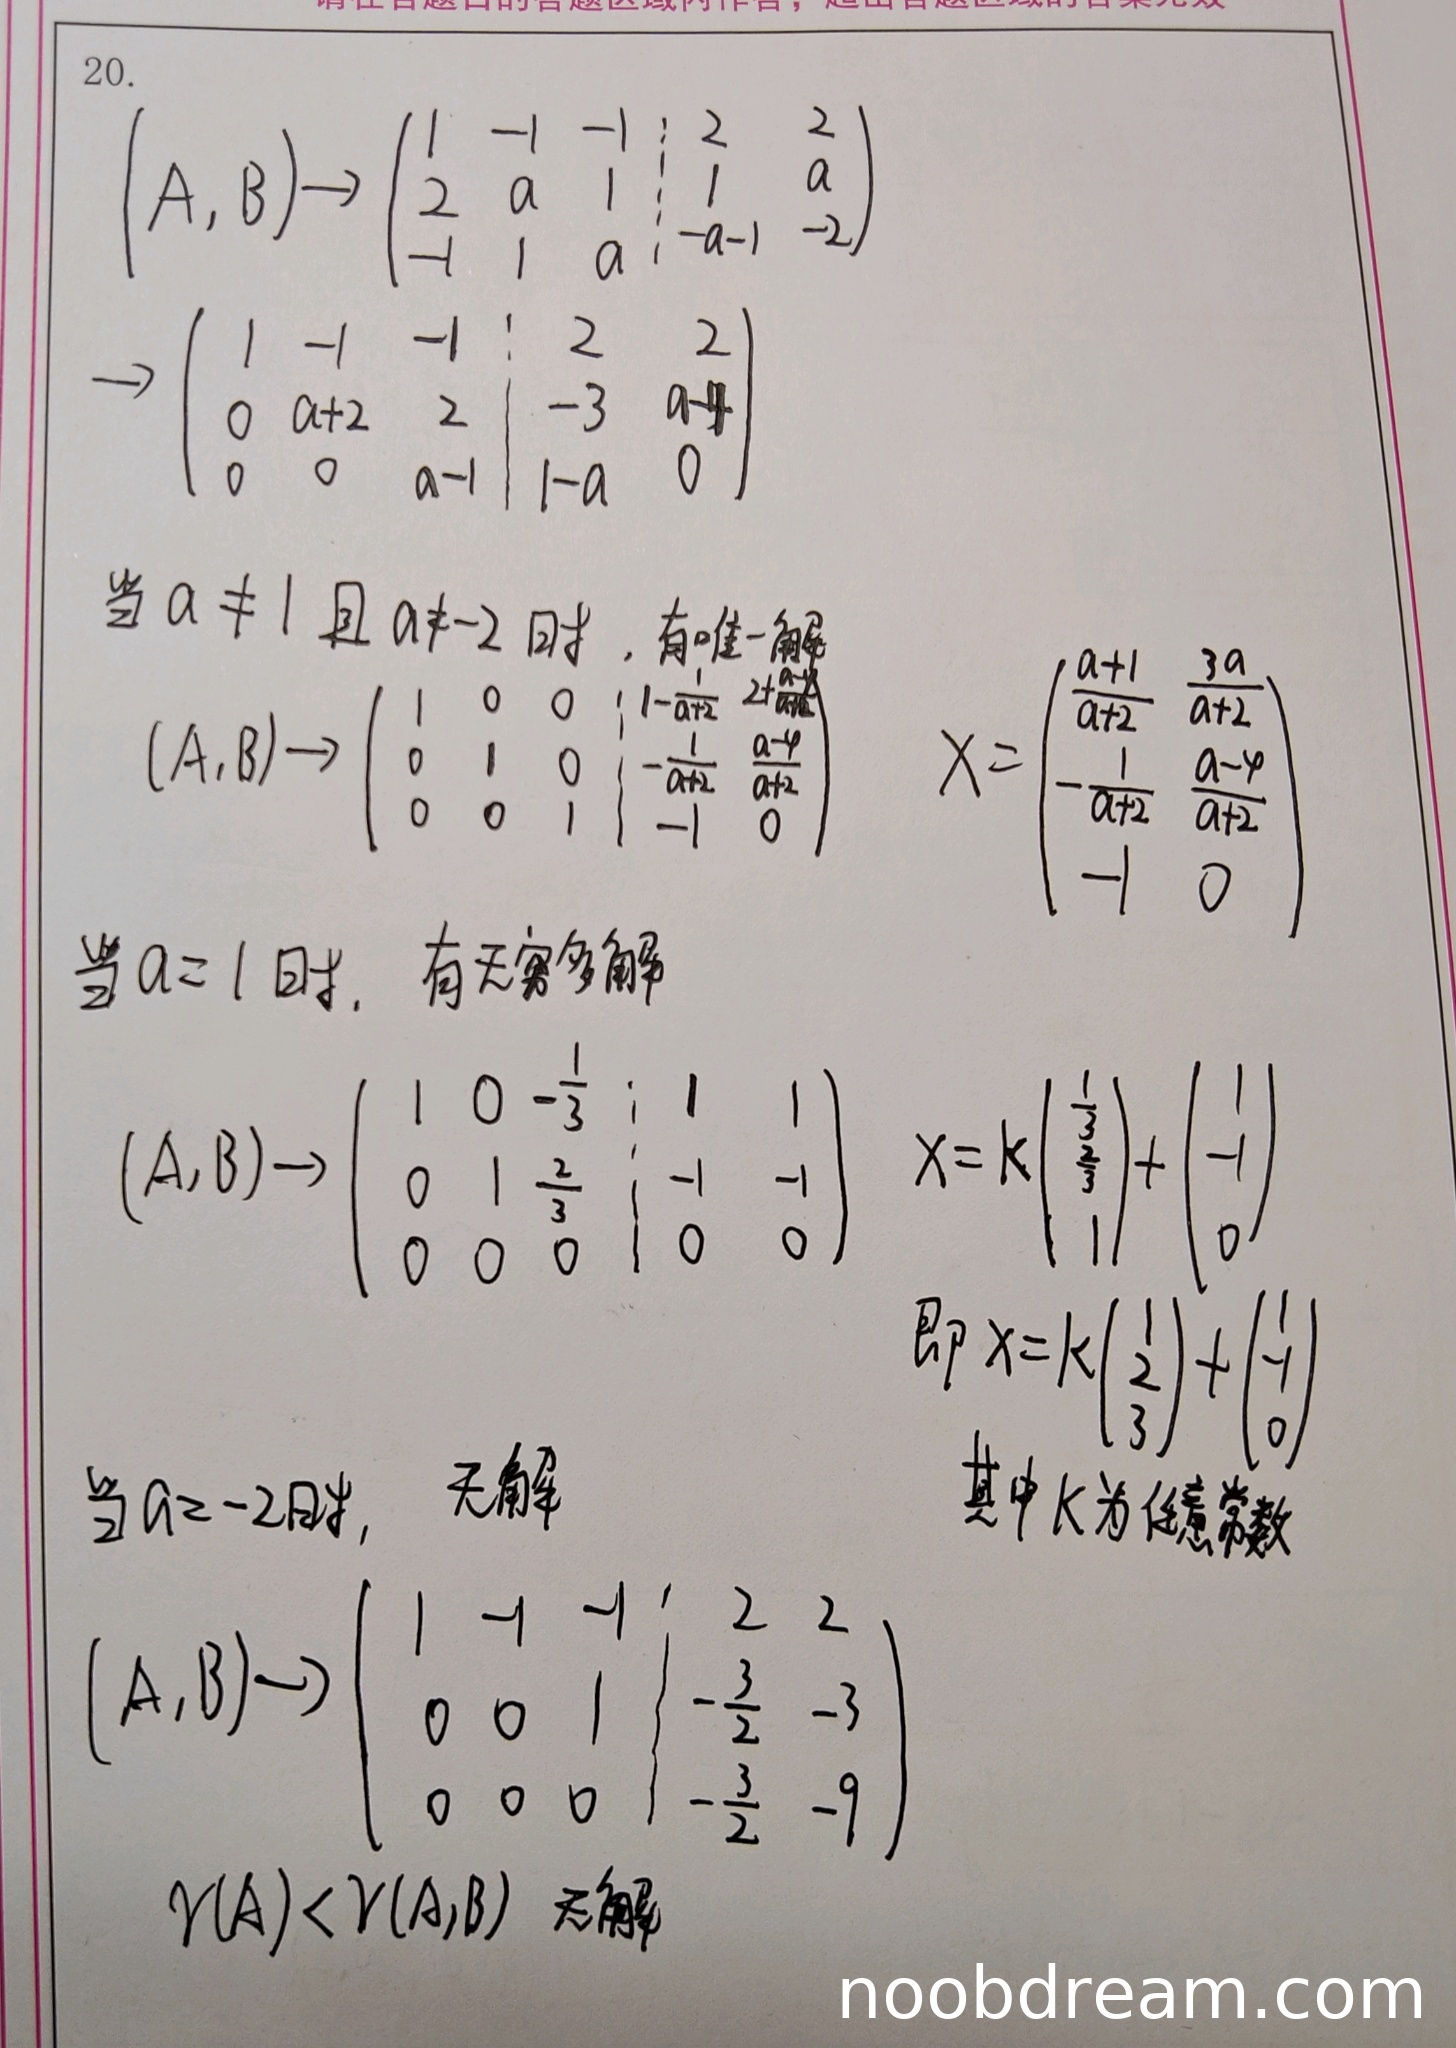 请在各题目的答题区域内作答，超出答题区域的答案无效
20.
(A,B)→
1 -1 -1 2 2
2 a 1 1 a
-1 1 a -a-1 -2
→
1 -1 -1 2 2
0 a+2 2 -3 a-4
0 0 a-1 1-a 0
当a≠1且a≠-2时，有唯一解
(A,B)→
1 0 0 1-1/(a+2) 2+(a-4)/(a+2)
0 1 0 -1/(a+2) (a-4)/(a+2)
0 0 1 -1 0
X=
(a+1)/(a+2) 3a/(a+2)
-1/(a+2) (a-4)/(a+2)
-1 0
当a=1时，有无穷多解
(A,B)→
1 0 -1/3 1 1
0 1 2/3 -1 -1
0 0 0 0 0
X=k(1/3 2/3 1)+(1 -1 0)
即X=k(1 2 3)+(1 -1 0)
其中k为任意常数
当a=-2时，无解
(A,B)→
1 -1 -1 2 2
0 0 1 -3/2 -3
0 0 0 -3/2 -9
r(A)<r(A,B) 无解
noobdream.com